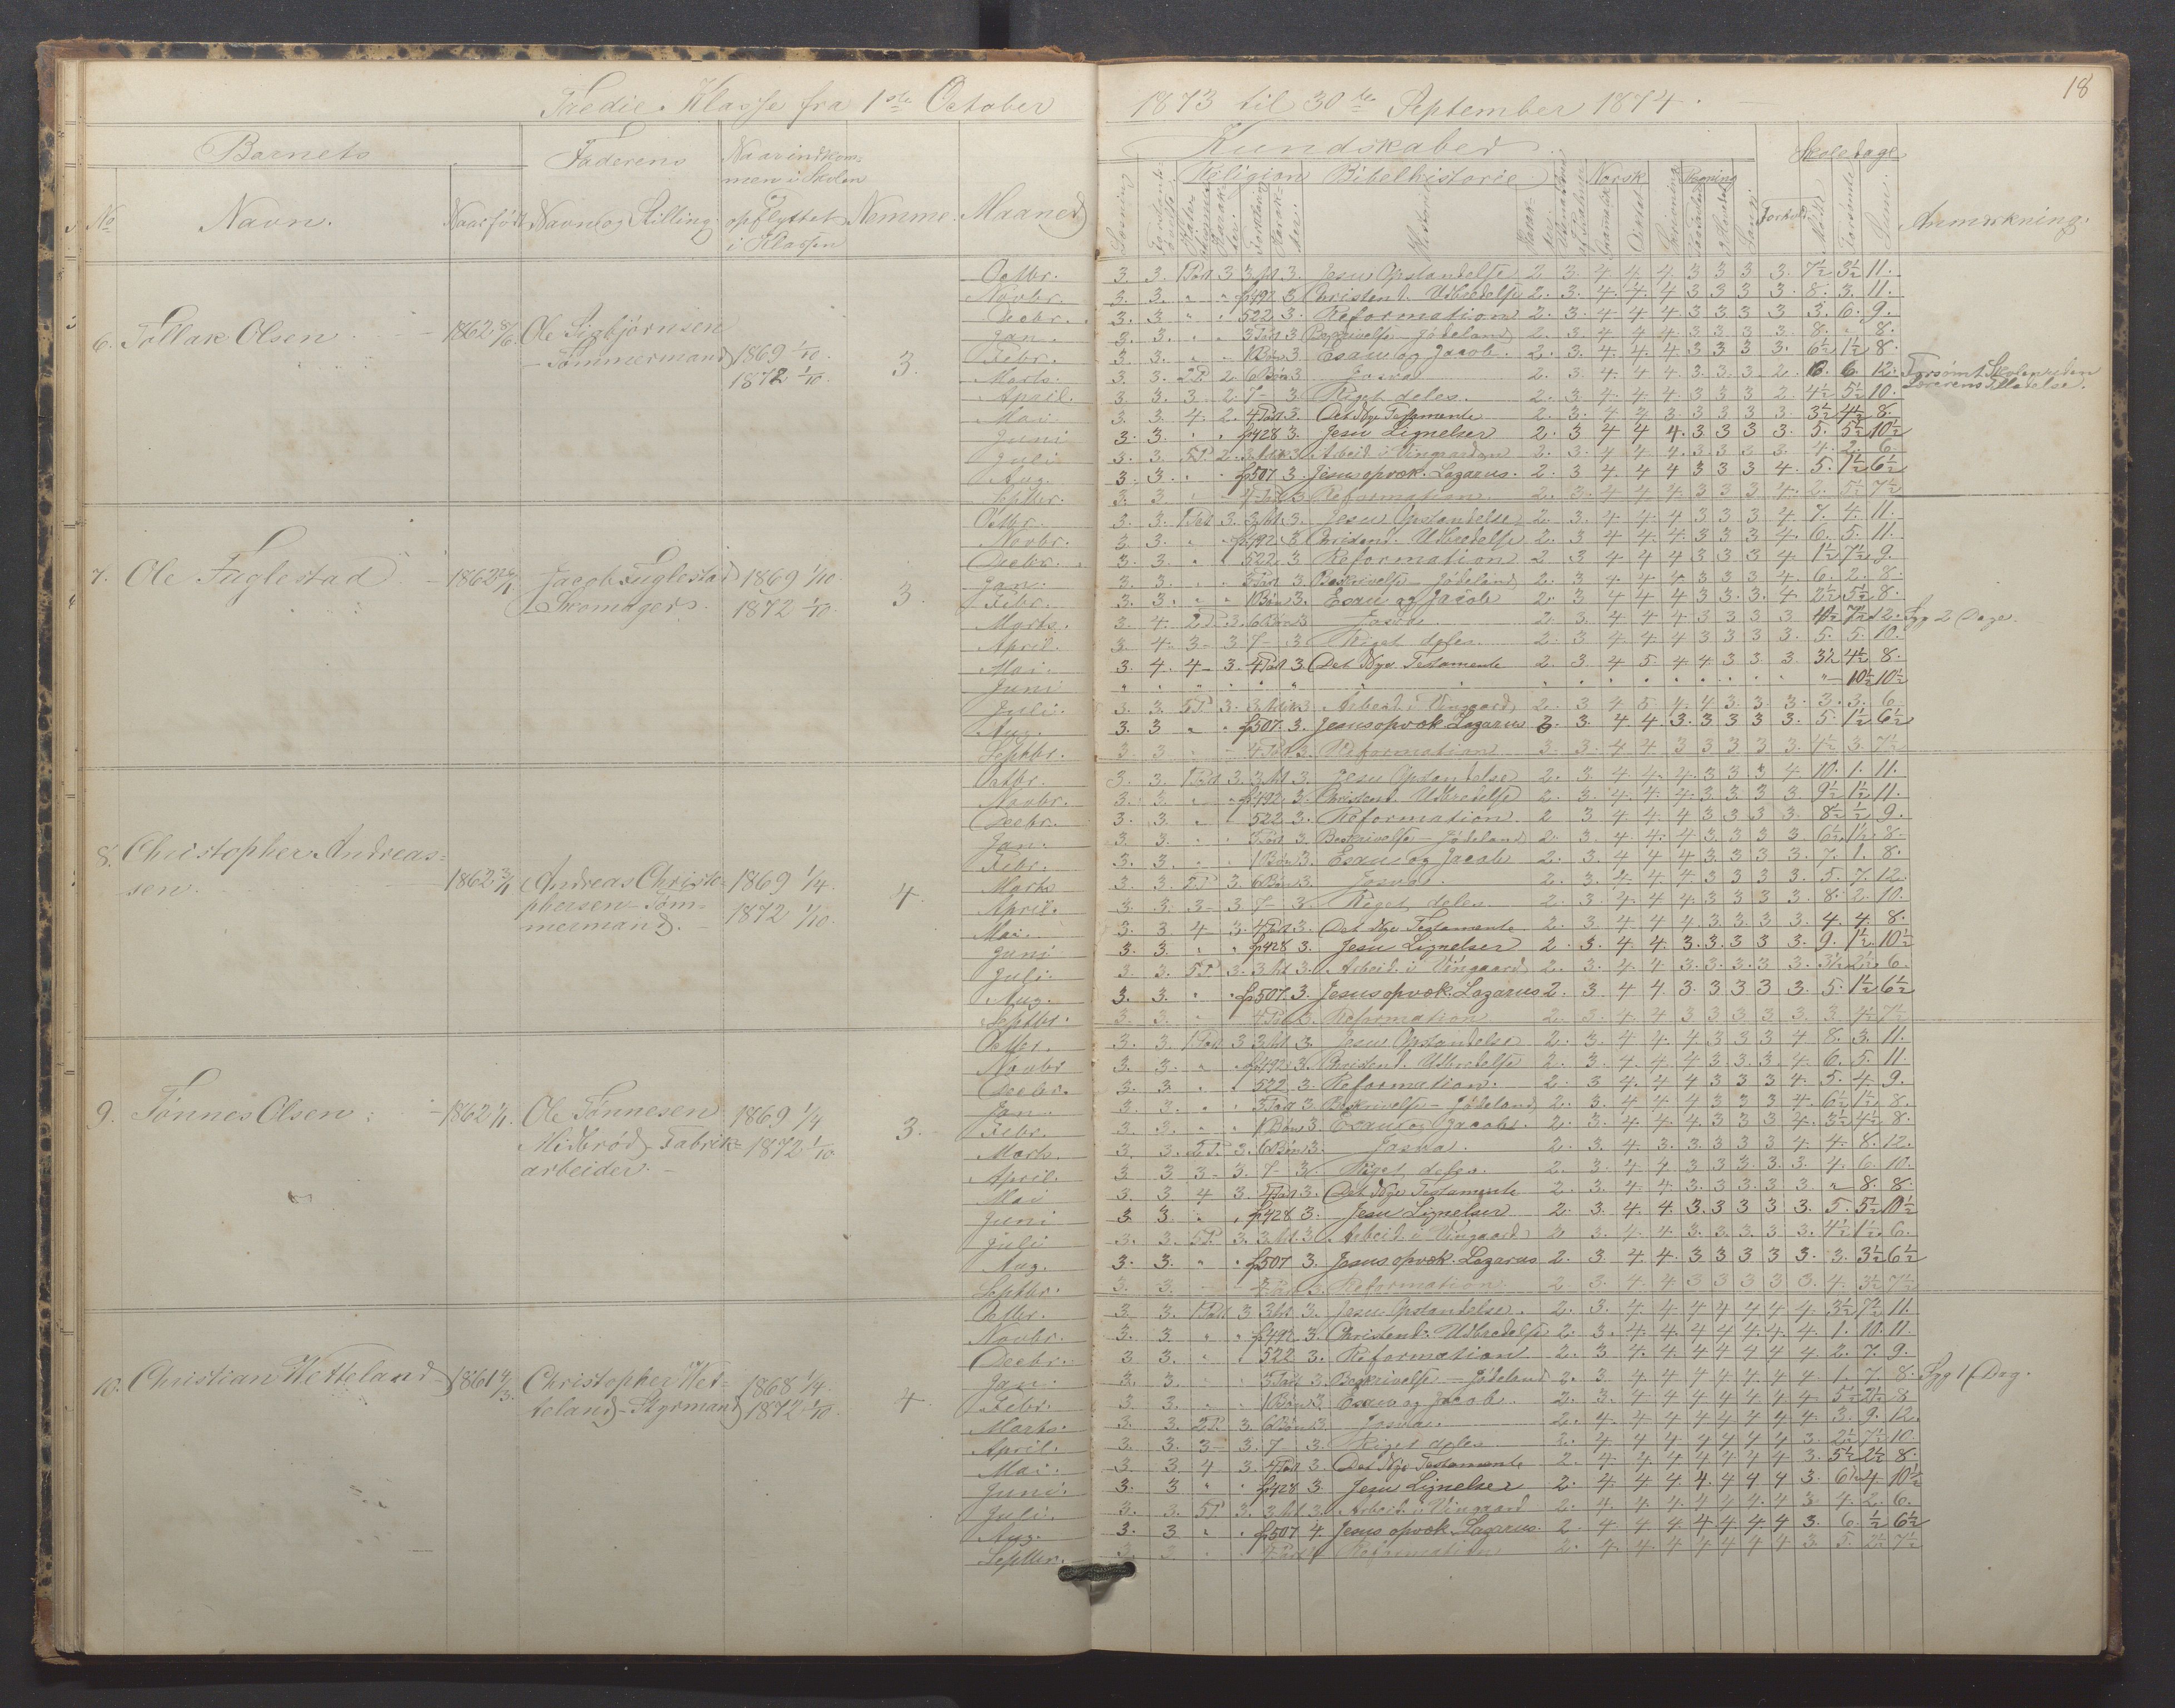 18
Tredie Klasse fra 1ste October 1873 til 30te September 1874.
Barnets
Faderens
Naar indkommen i Skolen
opflyttet i Klassen
Kundskaber
Skoledage
No
Navn.
Naar født
Navn og Stilling.
Nemme.
Maaned
Religion
Bibelhistorie
Norsk
Regning
Forhold
Mødte
Forsømte
Sum.
Anmærkning.
6. Tollak Olsen
1862 8/6
Ole Sigbjørnsen
Tømmermand
1869 1/10
1872 1/10
3.
Octbr. 3. 3. 1 Part 3 3 Art 3. Jesu Opstandelse 2. 3. 4. 4. 4. 3 3 3 3. 7½ 3½ 11.
Novbr. 3. 3. " " fr 492 3 Christend. Udbredelse 2. 3. 4. 4. 4 3 3 3 3. 8. 3. 11.
Decbr. 3. 3 " " 522 3. Reformation 2. 3. 4 4 4 3 3 3 3 3. 6. 9.
Jan. 3. 3. " " 3 Part 3 Beskrivelse Jødeland 2. 3. 4. 4. 4. 3 3 3 3. 8. " 8.
Febr. 3. 3. " " 1 Bøn 3 Esau og Jacob. 2. 3. 4. 4. 4 3 3 3 3. 6½ 1½ 8.
Marts. 3. 3. 2 P. 2 6 Bøn 3 Josva 2. 3. 4. 4 4. 3. 3. 3. 2. 6. 6 12. Forsømt Skolen uden
Lærerens Tilladelse.
April. 3. 3. 3 2. 7 – 3. Riget deles. 2. 3. 4. 4. 4. 3 3 3 2. 4½ 5½ 10.
Mai. 3. 3. 4. 2. 4 Part 3. Det Nye Testamente 2. 3. 4 3 3. 3 3 3 3. 3½ 4½ 8.
Juni 3. 3. " " fr 428 3. Jesu Lignelser 2. 3 4 4 4. 3 3 3 3. 5. 5½ 10½
Juli 3. 3. 5 P. 2. 3 Art 3. Arbeid. i Vingaarden 2. 3. 4 4 4. 3. 3 3 3. 4. 2. 6.
Aug. 3. 3. " " fr 507 3. Jesus opvæk. Lazarus. 2. 3 4 4 4 3 3 3 4. 5. 1½ 6½
Septbr. 3. 3 " " 4 Part 3 Reformation. 2. 3. 4 4 4 3 3 3 4. 2. 5½ 7½
7. Ole Fuglestad
Jacob Fuglestad
Skomager.
1869 1/10
1872 1/10
3.
Octbr. 3. 3. 1 Part 3. 3 Art. 3. Jesu Opstandelse 2. 3. 4. 4. 4 3 3 3 4 7. 4. 11.
Novbr. 3. 3. " " fr 492. 3 Christend. Udbredelse 2. 3 4 4. 4. 3 3 3 4. 6. 5. 11.
Decbr. 3. 3. " " 522 3 Reformation 2 3 4 4 4 3 3 3 4. 1½ 7½ 9.
Jan. 3. 3. " " 3 Part 3 Beskrivelse – Jødeland 2. 3 4 4. 4. 3 3 3 4. 6. 2. 8.
Febr. 3. 3. " " 1 Bøn 3. Esau og Jacob 2. 3 4 4 4 3 3. 3. 4. 2½ 5½ 8.
Marts. 3 4. 2 P. 3. 6 Bøn 3 Josva. 2. 3. 4 4 4 3 3 3 3 4½ 7½ 12. Syg 2 Dage.
April. 3. 4. 3 – 3 7 – 3 Riget deles 2. 3 4. 4. 4 3 3 3 3. 5. 5. 10.
Mai. 3 4. 4 – 3. 4 Part 3. Det Nye Testamente 2. 3. 4 5. 4. 4 3 3 3. 3½ 4½ 8.
Juni " " " " " " " " " " " " " " " " " 10½ 10½
Juli. 3. 3 5 P. 3. 3 Art 3 Arbeid. i Vingaard. 2. 3 4 5 4. 4 3. 3. 3. 3. 3. 6.
Aug. 3. 3 " " fr 507. 3. Jesus opvæk. Lazarus 3. 3. 4 4. 3. 3 3 3 3. 5. 1½ 6½
Septbr. 3 3 " " 4 Part 3. Reformation 3. 3. 4 4 3 3 3 3 3. 4½ 3. 7½
8. Christopher Andreas-
sen.
Andreas Christo-
phersen – Tøm-
mermand.
1869 1/4
1872 1/10
4.
Octbr. 3. 3. 1 Part 3. 3 Art 3. Jesu Opstandelse 2. 3. 4. 4. 4. 3. 3 3 4 10. 1. 11.
Novbr. 3. 3. " " fr 492. 3. Christend. Udbredelse 2. 3. 4. 4. 4. 3. 3 3 3 9½ 1½ 11.
Decbr. 3. 3. " " 522 3. Reformation. 2 3 4 4 4 3 3 3 3. 8½ ½ 9.
Jan. 3. 3. " " 3 Part 3. Beskrivelse – Jødeland 2. 3. 4. 4. 4 3. 3 3 3 6½ 1½ 8.
Febr. 3. 3. " " 1 Bøn 3. Esau og Jacob 2. 3. 4 4 4 3. 3 3 3. 7. 1. 8.
Marts 3. 3. 2 P. 3. 6 Bøn 3. Josva. 2. 3. 4. 4. 4 3 3 3 3. 5. 7. 12.
April. 3. 3. 3 – 3 7 – 3. Riget deles 2. 3. 4 4. 4. 3 3 3 3. 8. 2. 10.
Mai. 3. 3. 4 3. 4 Part 3. Det Nye Testamente 2. 3 4 4 4 3. 3 3 3. 4. 4. 8.
Juni 3. 3. " " fr 428 3. Jesu Lignelser 2. 3. 4. 4. 3. 3. 3 3 3. 9. 1½ 10½
Juli. 3. 3. 5 P. 3. 3 Art 3. Arbeid. i Vingaard. 2. 3. 4. 4 3. 3. 3. 3 3. 3½ 2½ 6.
Aug. 3. 3. " " fr 507. 3. Jesus opvæk. Lazarus 2. 3 4 4. 3. 3. 3 3 3. 5. 1½ 6½
Septbr. 3. 3. " " 4 Part 3. Reformation 2. 3. 4 4 3 3 3 3 3. 3. 4½ 7½
9. Tønnes Olsen
Ole Tønnesen
Midbrød – Fabrik-
arbeider. –
1869 1/4
1872 1/10
3.
Octbr. 3. 3. 1 Part 3 3 Art 3. Jesu Opstandelse 2. 3. 4 4. 4 3 3 3 4 8. 3. 11.
Novbr 3. 3. " " fr 492. 3. Christend. Udbredelse 2. 3. 4. 4. 4 3 3. 3 4. 6. 5. 11.
Decbr. 3. 3. " " 522 3 Reformation. 2. 3 4. 4 4 3 3 3 4. 5. 4. 9.
Jan. 3. 3. " " 3 Part 3 Beskrivelse – Jødeland 2. 3. 4. 4 4 3 3 3 4. 6½ 1½ 8.
Febr. 3. 3. " " 1 Bøn 3. Esau og Jacob. 2. 3. 4. 4. 4 3 3 3 4. 3½ 4½ 8.
Marts. 3. 3. 2 P. 3. 6 Bøn 3. Josva. 2. 3. 4 3. 3. 3 3 3 4. 4. 8. 12.
April. 3 3 3 – 3. 7 – 3. Riget deles. 2. 3. 4 4 3 3 3. 3. 3. 4. 6. 10.
Mai 3. 3 4 3. 4 Part 3. Det Nye Testamente 2. 3. 4. 4. 3. 3 3. 3 3 " 8. 8.
Juni 3 3 " " fr 428 3. Jesu Lignelser 2. 3. 4. 4. 3. 3 3 3 3. 5. 5½ 10½
Juli 3. 3. 5 P. 3. 3 Art. 3 Arbeid. i Vingaard. 2. 3. 4 4. 3. 3. 3. 3. 3. 4½ 1½ 6.
Aug. 3. 3. " " fr 507 3. Jesus opvæk. Lazarus 2. 3 4 4. 3 3 3 3 3. 3. 3½ 6½
Septbr. 3. 3. " " 4 Part 3. Reformation. 2. 3. 4 4 3 3 3 3 3. 4. 3½ 7½
10. Christian Wetteland
Christopher Wet-
teland – Styrmand
1868 1/4
1872 1/10
4.
Octbr. 3 3. 1 Part 3 3 Art 3. Jesu Opstandelse. 2. 3. 4. 4. 4 4 4 4 4. 3½ 7½ 11.
Novbr. 3. 3 " " fr 492. 3. Christend. Udbredelse 2. 3. 4. 4. 4 4. 4. 4. 4. 1. 10. 11.
Decbr. 3 3. " " 522 3. Reformation 2. 3 4. 4. 4 4 4 4 4 2. 7. 9.
Jan. 3. 3. " " 3 Part 3. Beskrivelse – Jødeland 2. 3 4 4 4 4 4 4 4 1. 7. 8. Syg 1 Dag.
Febr. 3 3. " " 1 Bøn 3. Esau og Jacob. 2. 3. 4 4 4 4 4 4 4. 5½ 2½ 8.
Marts. 3 3. 2 P. 3. 6 Bøn 3 Josva. 2. 4. 4 4 4 4 4 4 4. 3. 9. 12.
April. 3. 3. 3 – 3. 7 – 3. Riget deles 2. 4. 4 4 4 4 4 4 3. 2½ 7½ 10.
Mai. 3 3. 4 3. 4 Part 3. Det Nye Testamente 2. 4. 4. 4 4 4 4 4 3. 5½ 2½ 8.
Juni. 3. 3 " " fr 428 3. Jesu Lignelser 2. 4 4 4. 4. 4 4 4 3. 6½ 4 10½
Juli. 3. 3. 5 P. 3. 3 Art 3. Arbeid. i Vingaard 2. 4. 4. 4. 4 4 4. 4 3 4. 2. 6.
Aug. 3. 3 " " fr 507 4. Jesus opvæk. Lazarus. 2. 4 4 4 4 4 4 4 3. 6. ½ 6½
Septbr. 3. 3. " " 4 Part 4 Reformation 2. 4. 4. 4 4 4 4 4 3. 5. 2½ 7½